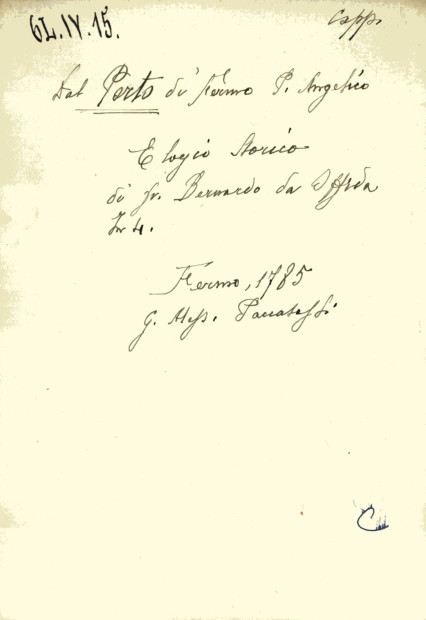 6L.IV.15.
Capp.
Dal Porto di Fermo P. Angelico
Elogio storico
di fr. Bernardo da Offida
In 4.
Fermo, 1785
G. Aless. Paccasassi